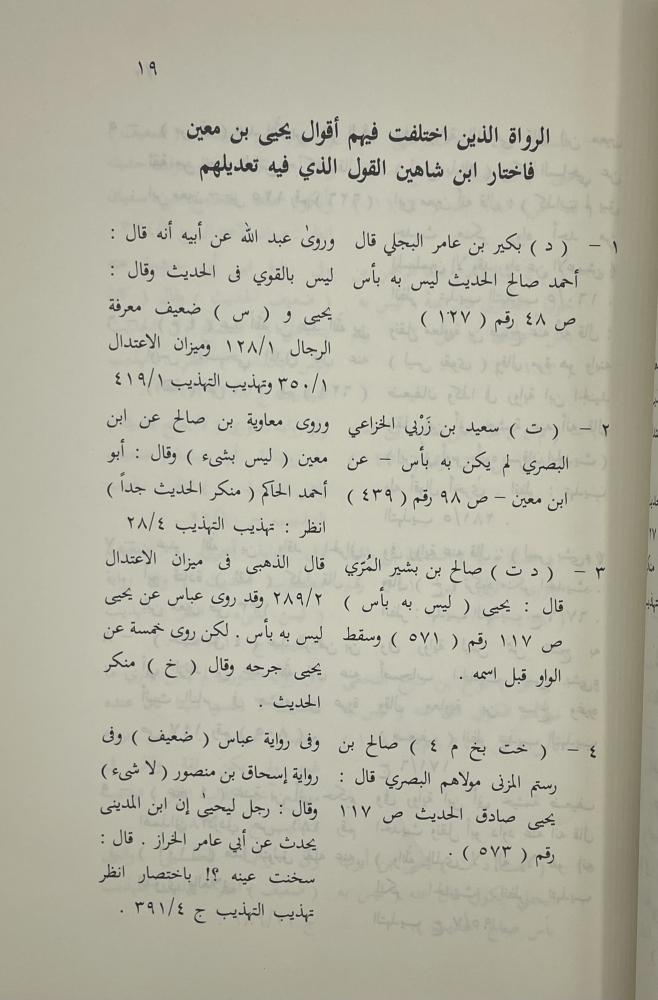 ١٩
الرواة الذين اختلفت فيهم أقوال يحيى بن معين
فاختار ابن شاهين القول الذي فيه تعديلهم
١ – ( د ) بكير بن عامر البجلي قال
أحمد صالح الحديث ليس به بأس
ص ٤٨ رقم ( ١٢٧ )
وروىٰ عبد الله عن أبيه أنه قال :
ليس بالقوي فى الحديث وقال :
يحيى و ( س ) ضعيف معرفة
الرجال ١٢٨/١ وميزان الاعتدال
٣٥٠/١ وتهذيب التهذيب ٤١٩/١
٢ – ( ت ) سعيد بن زَرْبي الخزاعي
البصري لم يكن به بأس – عن
ابن معين – ص ٩٨ رقم ( ٤٣٩ )
وروى معاوية بن صالح عن ابن
معين ( ليس بشىء ) وقال : أبو
أحمد الحاكم ( منكر الحديث جداً )
انظر : تهذيب التهذيب ٢٨/٤
٣ – ( د ت ) صالح بن بشير المُرّي
قال : يحيى ( ليس به بأس )
ص ١١٧ رقم ( ٥٧١ ) وسقط
الواو قبل اسمه .
قال الذهبى فى ميزان الاعتدال
٢٨٩/٢ وقد روى عباس عن يحيى
ليس به بأس . لكن روى خمسة عن
يحيى جرحه وقال ( خ ) منكر
الحديث .
٤ – ( خت بخ م ٤ ) صالح بن
رستم المزنى مولاهم البصري قال :
يحيى صادق الحديث ص ١١٧
رقم ( ٥٧٣ ) .
وفى رواية عباس ( ضعيف ) وفى
رواية إسحاق بن منصور ( لا شىء )
وقال : رجل ليحيىٰ إن ابن المدينى
يحدث عن أبي عامر الخراز . قال :
سخنت عينه ؟! باختصار انظر
تهذيب التهذيب ج ٣٩١/٤ .